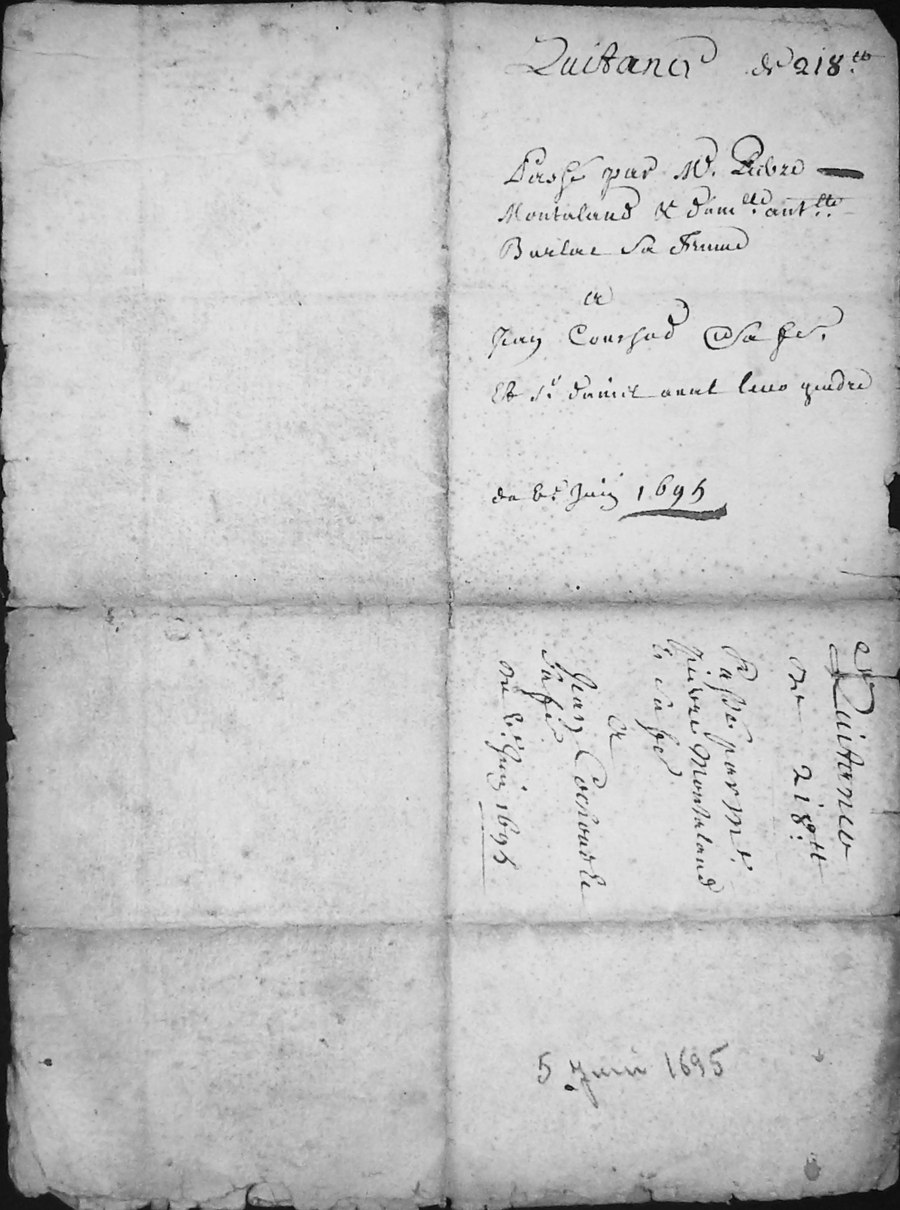 Quitance de 218.tt
Passé par Mr. Piebre
Montaland & dam.lle ant.tte
Burlat sa femme
a
Jean Courhad & sa fe.
Et Sr. daniel leur gendre
du 5e Juin 1695
Quitance
de 218.tt
Passé par Mr.
piebre Montaland
& sa fe
a
Jean Couhard &
sa fe
du 5e Juin 1695
5 juin 1695